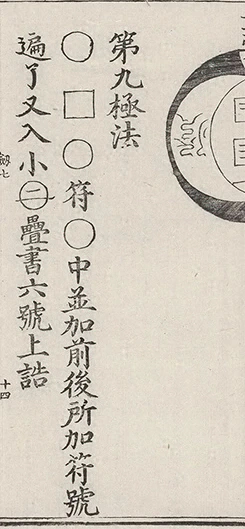 第九極法
○□○符○中並加前後所加符號
遍了又入小㊁疊書六號上誥
十四